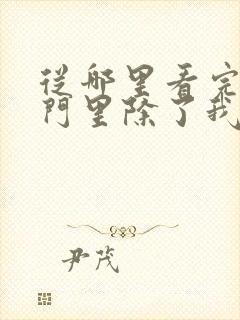 從哪里看完
門里除了我
尹茂